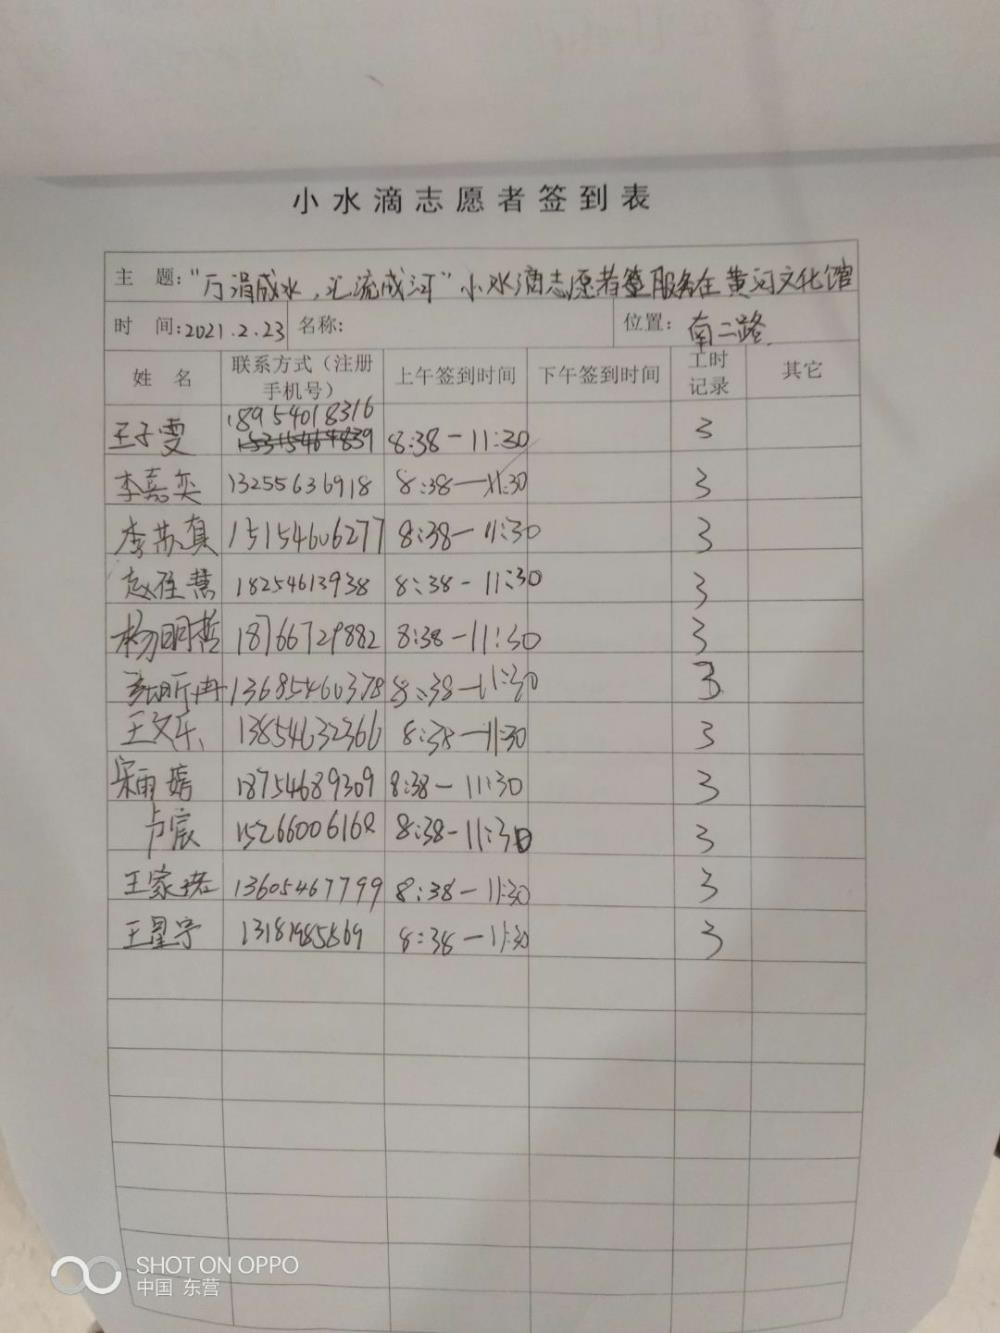 小水滴志愿者签到表
主 题:“万涓成水，汇流成河”小水滴志愿者服务在黄河文化馆
时 间:2021.2.23 名称: 位置: 南二路
姓 名 联系方式（注册手机号） 上午签到时间 下午签到时间 工时记录 其它
王子雯 18954018316 8:38-11:30 3
李嘉奕 13255636918 8:38-11:30 3
李苏真 15154606277 8:38-11:30 3
赵 慧 18254613938 8:38-11:30 3
杨明哲 18766729882 8:38-11:30 3
张昕冉 13685460378 8:38-11:30 3
王文乐 13854632366 8:38-11:30 3
宋雨 18754689309 8:38-11:30 3
卢宸 15266006168 8:38-11:30 3
王家珺 13605467799 8:38-11:30 3
王星宇 8:38-11:30 3
SHOT ON OPPO
中国 东营